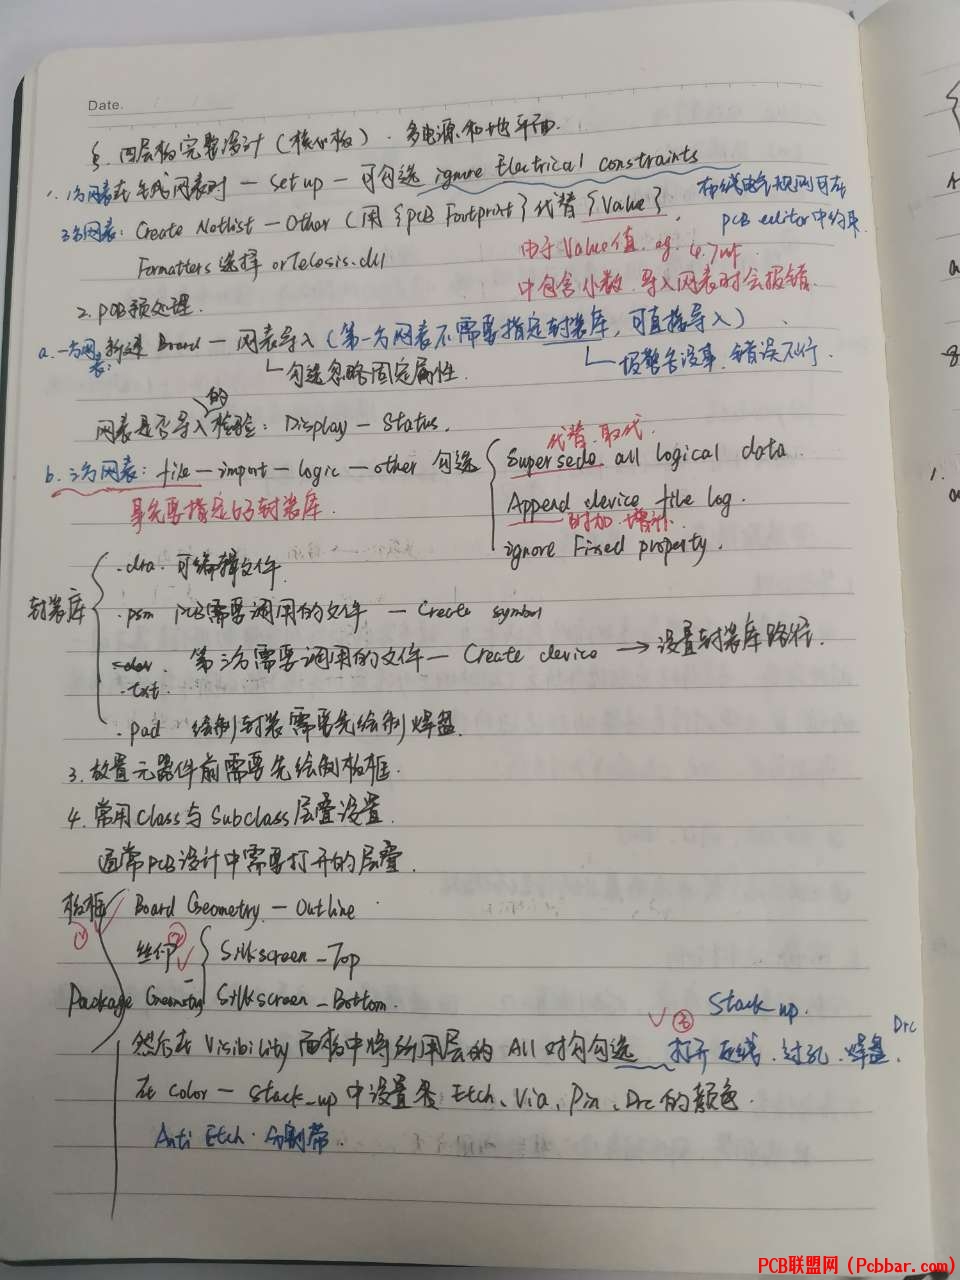 Date.
§. 四层板完整设计（核心板）. 多电源和地平面.
1. 一方网表在生成网表时 — Setup — 可勾选 ignore Electrical constraints
布线电气规则可在
PCB editor中约束
三方网表: Create Netlist — Other（用{PCB Footprint}代替{Value}.
Formatters 选择 orTelesis.dll
由于Value值. eg. 4.7uf.
中包含小数. 导入网表时会报错.
2. PCB预处理.
a. 一方网表: 新建 Board — 网表导入（第一方网表不需要指定封装库, 可直接导入）.
勾选忽略固定属性.
报警告没事. 错误不行.
网表是否导入的检验: Display — Status.
b. 三方网表: file — import — logic — other 勾选
代替. 取代.
Supersede all logical data.
事先要指定好封装库.
Append device file log.
附加. 增补.
ignore Fixed property.
封装库
.dra. 可编辑文件.
.psm PCB需要调用的文件 — Create symbol
第三方需要调用的文件 — Create device → 设置封装库路径.
.txt.
.pad 绘制封装需要先绘制焊盘.
3. 放置元器件前需要先绘制板框.
4. 常用Class与Subclass层叠设置.
通常PCB设计中需要打开的层叠.
板框 Board Geometry — Outline
① 丝印 ② Silkscreen_Top
Package Geometry Silkscreen_Bottom.
③ Stack up.
然后在 Visibility 面板中将所用层的 All 对勾勾选 打开 走线. 过孔. 焊盘. Drc
在 color — Stack_up 中设置各 Etch、Via、Pin、Drc 的颜色.
Anti Etch. 分割带.
PCB联盟网（Pcbbar.com）